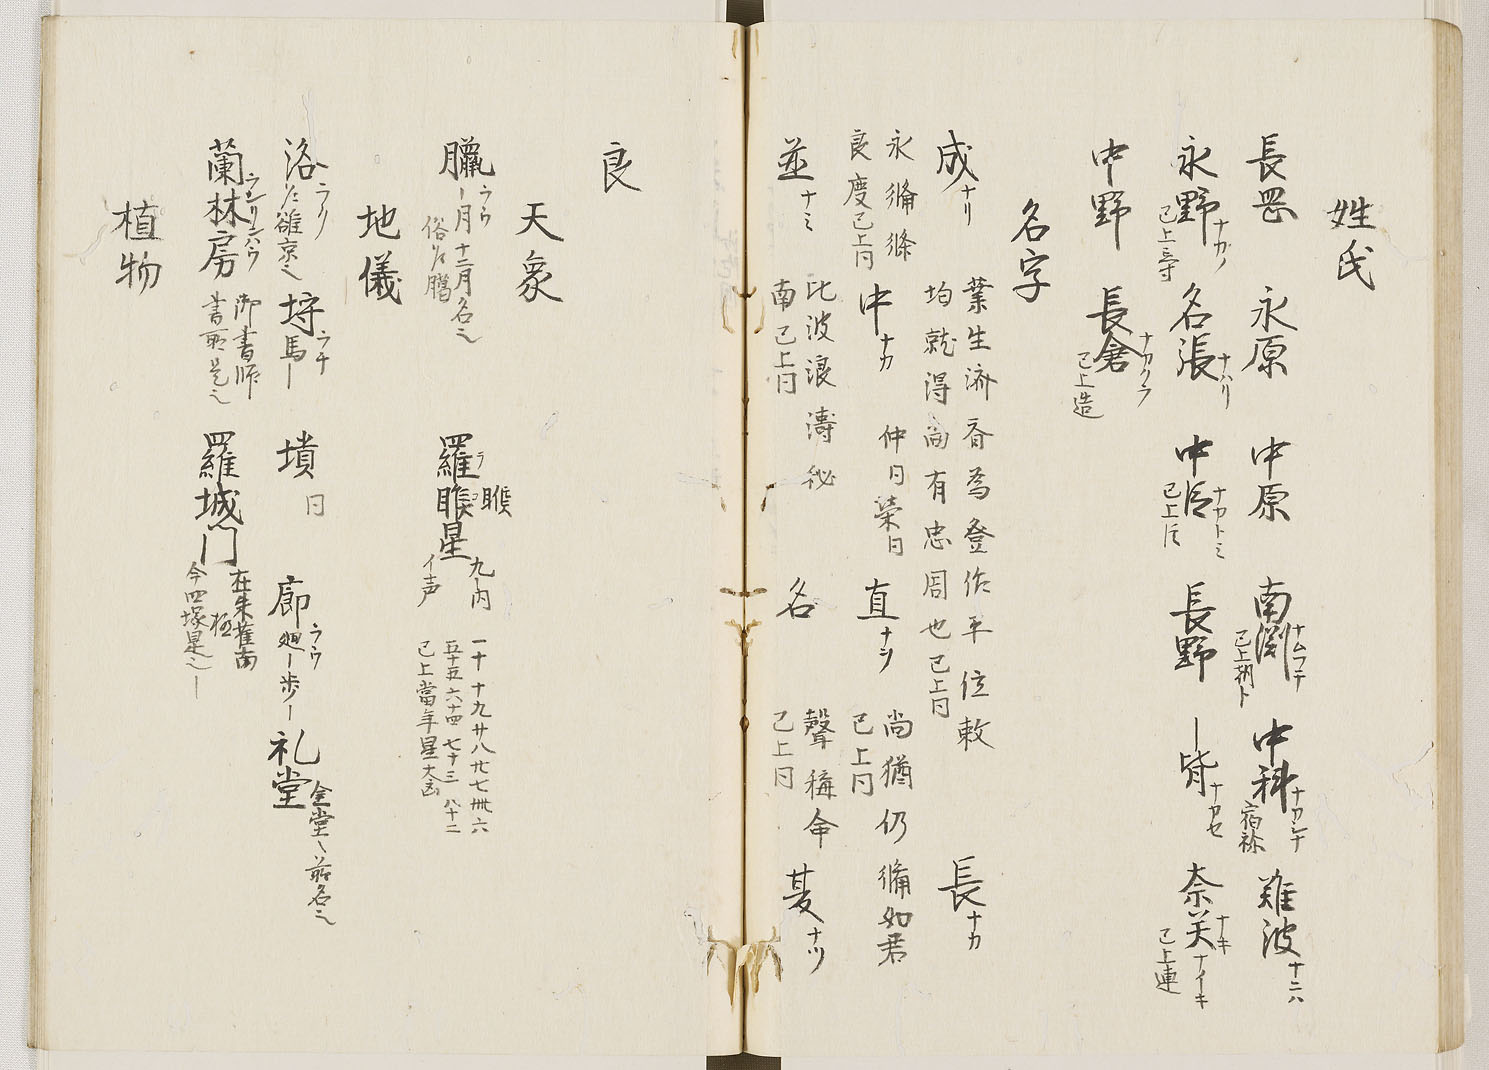 姓氏
長岡 永原 中原 南渕ナムフチ 已上朝卜 中科ナカシナ 宿祢 難波ナニハ
永野ナカノ 已上三寸 名張ナハリ 中臣ナカトミ 已上臣 長野 ー皆ナカセ 奈癸ナキ ナイキ 已上連
中野 長倉ナカクラ 已上造
名字
成ナリ 業生済斉為登作平位救
均就得尚有忠周也已上同 長ナカ
永脩條
良度已上同 中ナカ 仲同栄同 直ナヲ 尚猶仍脩如君
已上同
並ナミ 比波浪濤秘
南已上同 名 聲稱命
已上同 夏ナツ
良
天象
臘ラウ ー月十二月名之
俗作臈 羅睺星ラ 睺 九内
イ声 一十 十九 廿八 卅七 卌六
五十五 六十四 七十三 八十二
已上當年星大凶
地儀
洛ラク 洛陽京之 埒ラチ 馬ー 墳同 廊ラウ 廻ー歩ー 礼堂 金堂之前名之
蘭林房ランリンハウ 御書所
書所是之 羅城門 在朱雀南
極
今四塚是之ー
植物